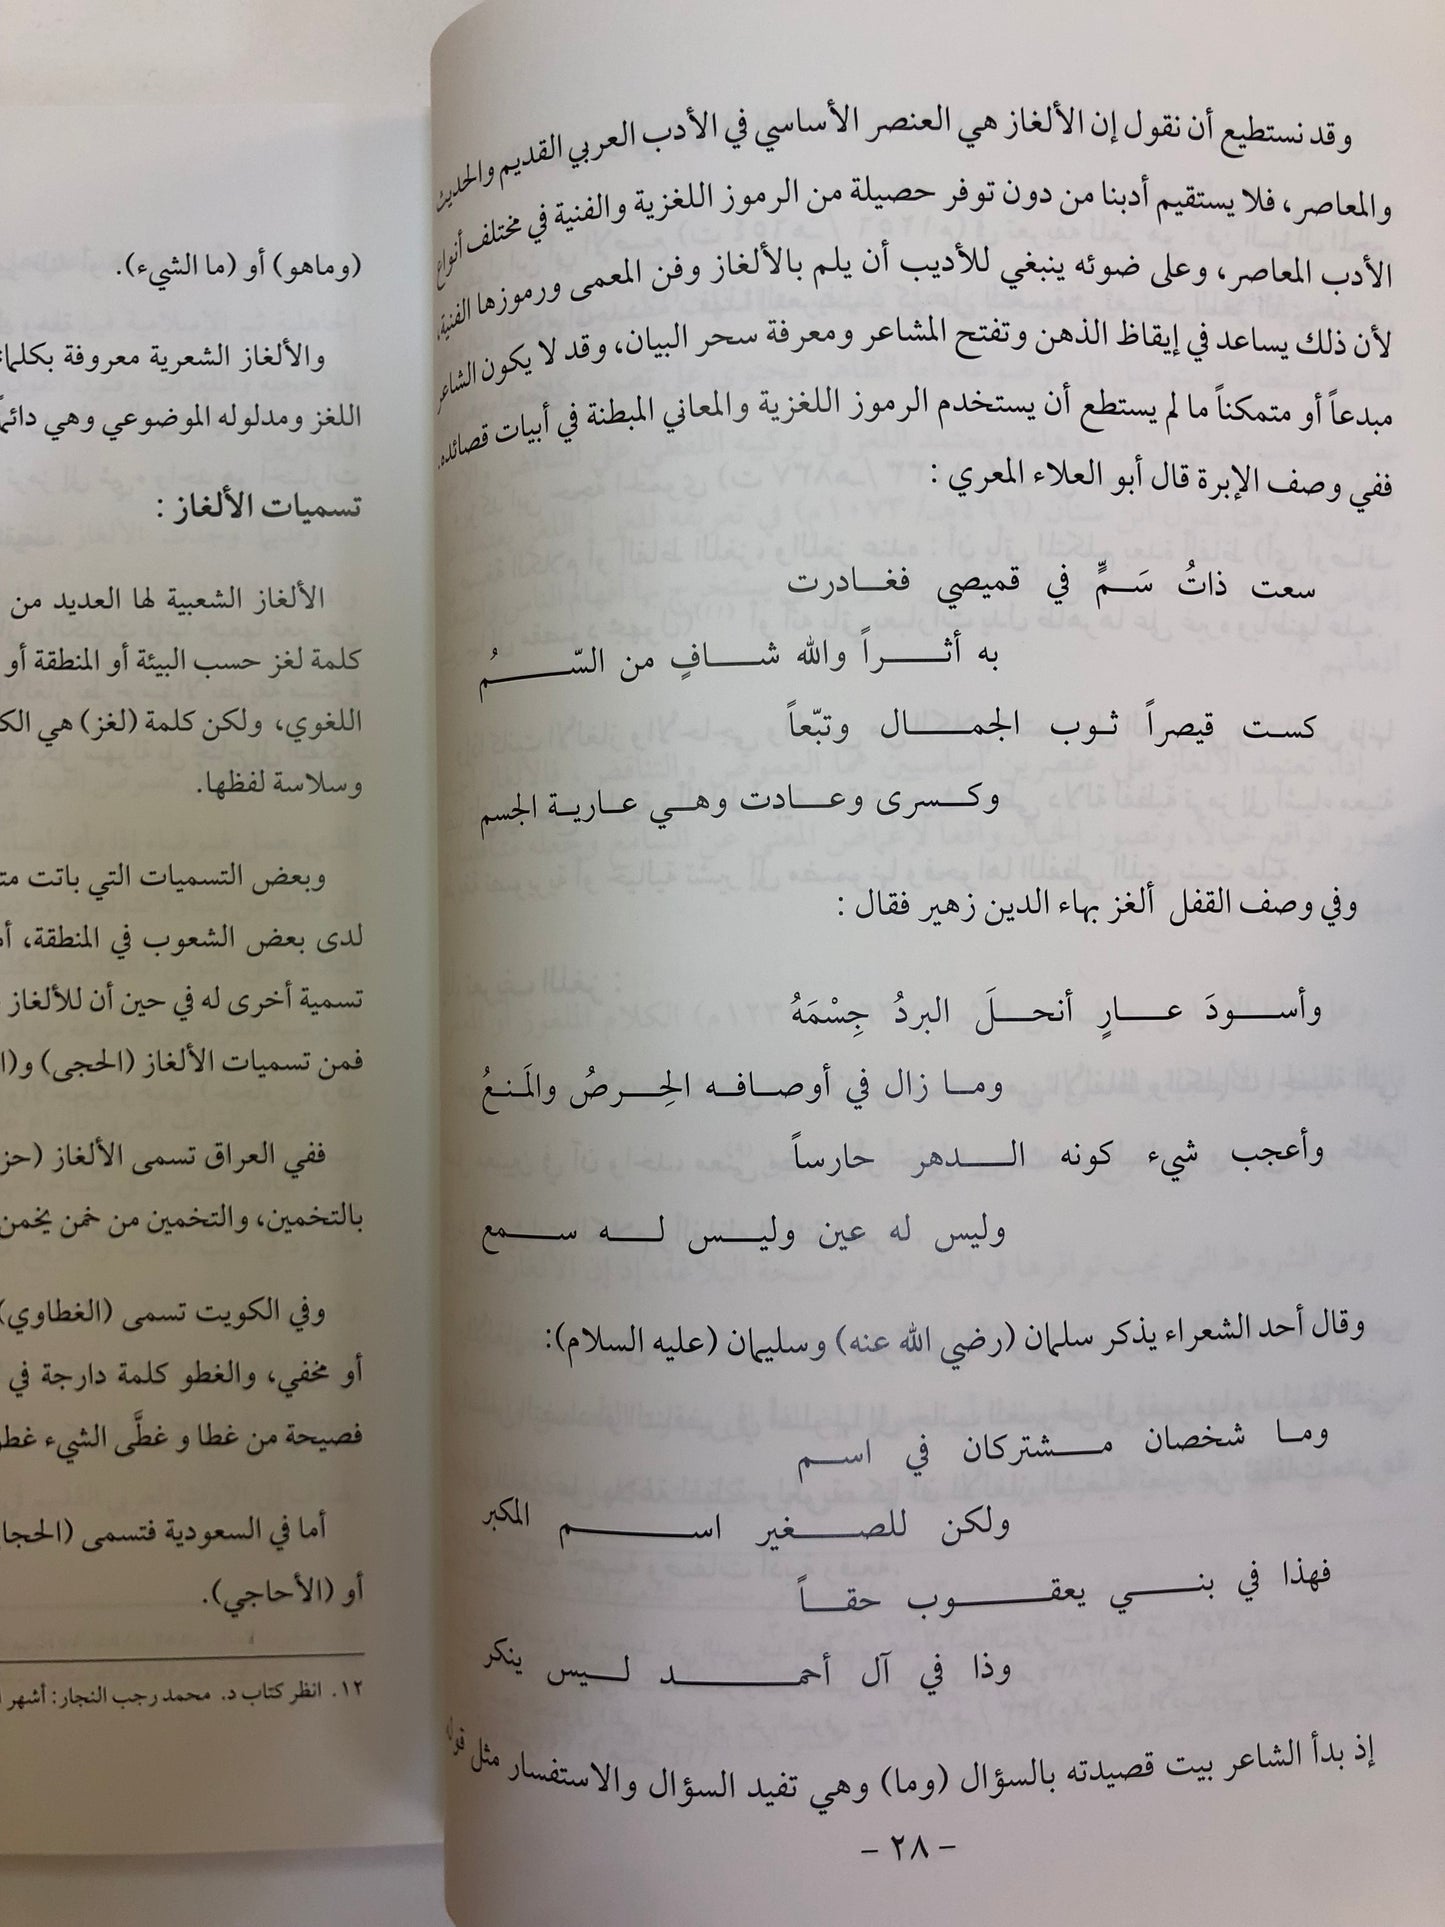 وقد نستطيع أن نقول إن الألغاز هي العنصر الأساسي في الأدب العربي القديم والحديث
والمعاصر، فلا يستقيم أدبنا من دون توفر حصيلة من الرموز اللغزية والفنية في مختلف أنواع
الأدب المعاصر، وعلى ضوئه ينبغي للأديب أن يلم بالألغاز وفن المعمى ورموزها الفنية،
لأن ذلك يساعد في إيقاظ الذهن وتفتح المشاعر ومعرفة سحر البيان، وقد لا يكون الشاعر
مبدعاً أو متمكناً ما لم يستطع أن يستخدم الرموز اللغزية والمعاني المبطنة في أبيات قصائده.
ففي وصف الإبرة قال أبو العلاء المعري :
سعت ذاتُ سَمٍّ في قميصي فغادرت
به أثراً والله شافٍ من السّمُ
كست قيصراً ثوب الجمال وتبّعاً
وكسرى وعادت وهي عارية الجسم
وفي وصف القفل ألغز بهاء الدين زهير فقال :
وأسودَ عارٍ أنحلَ البردُ جِسْمَهُ
وما زال في أوصافه الحِرصُ والمَنعُ
وأعجب شيء كونه الدهر حارساً
وليس له عين وليس له سمع
وقال أحد الشعراء يذكر سلمان (رضي الله عنه) وسليمان (عليه السلام):
وما شخصان مشتركان في اسم
ولكن للصغير اسم المكبر
فهذا في بني يعقوب حقاً
وذا في آل أحمد ليس ينكر
إذ بدأ الشاعر بيت قصيدته بالسؤال (وما) وهي تفيد السؤال والاستفسار مثل قوله
- ٢٨ -
(وماهو) أو (ما الشيء).
والألغاز الشعرية معروفة
اللغز ومدلوله الموضوعي وهي
تسميات الألغاز :
الألغاز الشعبية لها العديد من
كلمة لغز حسب البيئة أو المنطقة أو
اللغوي، ولكن كلمة (لغز) هي
وسلاسة لفظها.
وبعض التسميات التي باتت
لدى بعض الشعوب في المنطقة،
تسمية أخرى له في حين أن للألغاز
فمن تسميات الألغاز (الحجى)
ففي العراق تسمى الألغاز
بالتخمين، والتخمين من خمن يخمن
وفي الكويت تسمى (الغطاوي)
أو مخفي، والغطو كلمة دارجة في
فصيحة من غطا و غطَّى الشيء
أما في السعودية فتسمى
أو (الأحاجي).
١٢. انظر كتاب د. محمد رجب النجار: أشهر